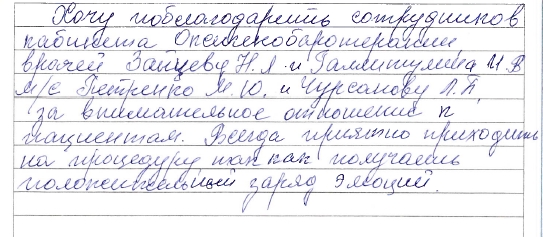 Хочу поблагодарить сотрудников
кабинета Оксигенобаротерапии,
врачей Зайцеву Н.А. и Галлитулина И.В
м/с Петренко М.Ю. и Чурсанову Л.П.
за внимательное отношение к
пациентам. Всегда приятно приходить
на процедуру так как получаешь
положительный заряд эмоций.